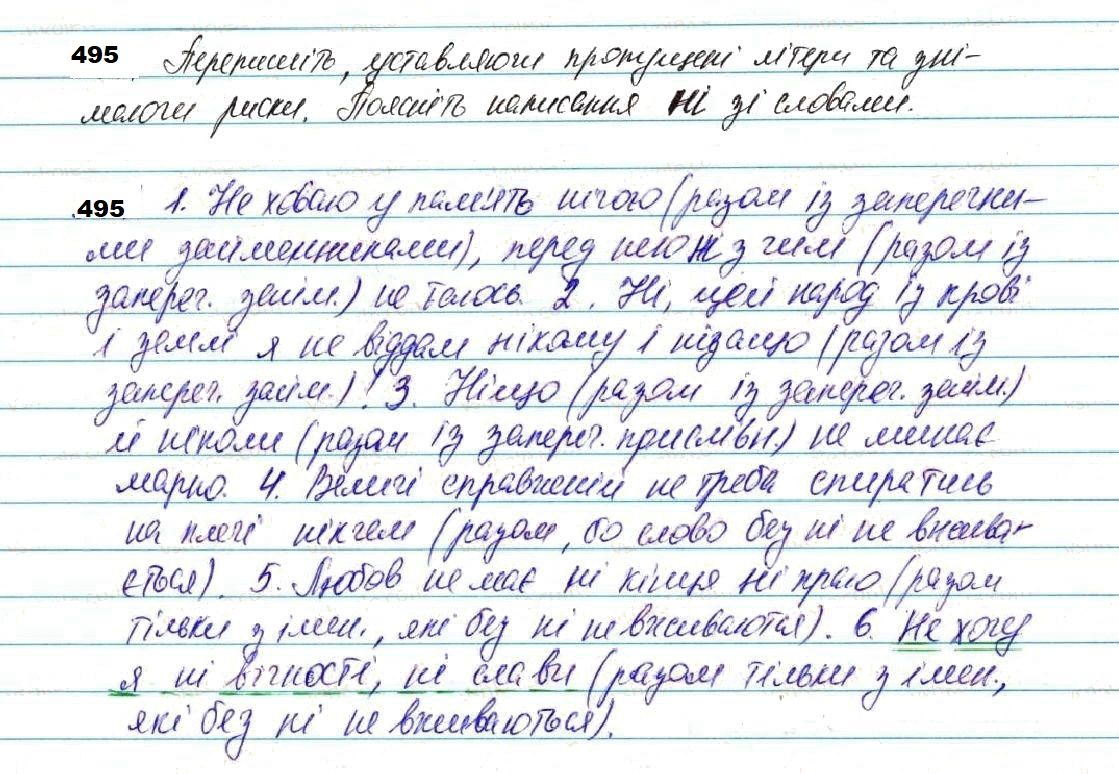 495 Перепишіть, уставляючи пропущені літери та зні-
маючи риски. Поясніть написання ні зі словами.
495 1. Не ховаю у пам'ять нічого (разом із заперечни-
ми займенниками), перед ніким з чим (разом із
запереч. займ.) не таюсь. 2. Ні, цей народ із крові
і землі я не віддам нікому і нізащо (разом із
запереч. займ.)! 3. Ніщо (разом із запереч. займ.)
й ніколи (разом із запереч. прислівн.) не минає
марно. 4. Величі справжній не треба спиратись
на плечі нікчем (разом, бо слово без ні не вжива-
ється). 5. Любов не має ні кінця ні краю (разом
тільки з імен., які без ні не вживаються). 6. Не хочу
я ні вічності, ні слави (разом тільки з імен.,
які без ні не вживаються).